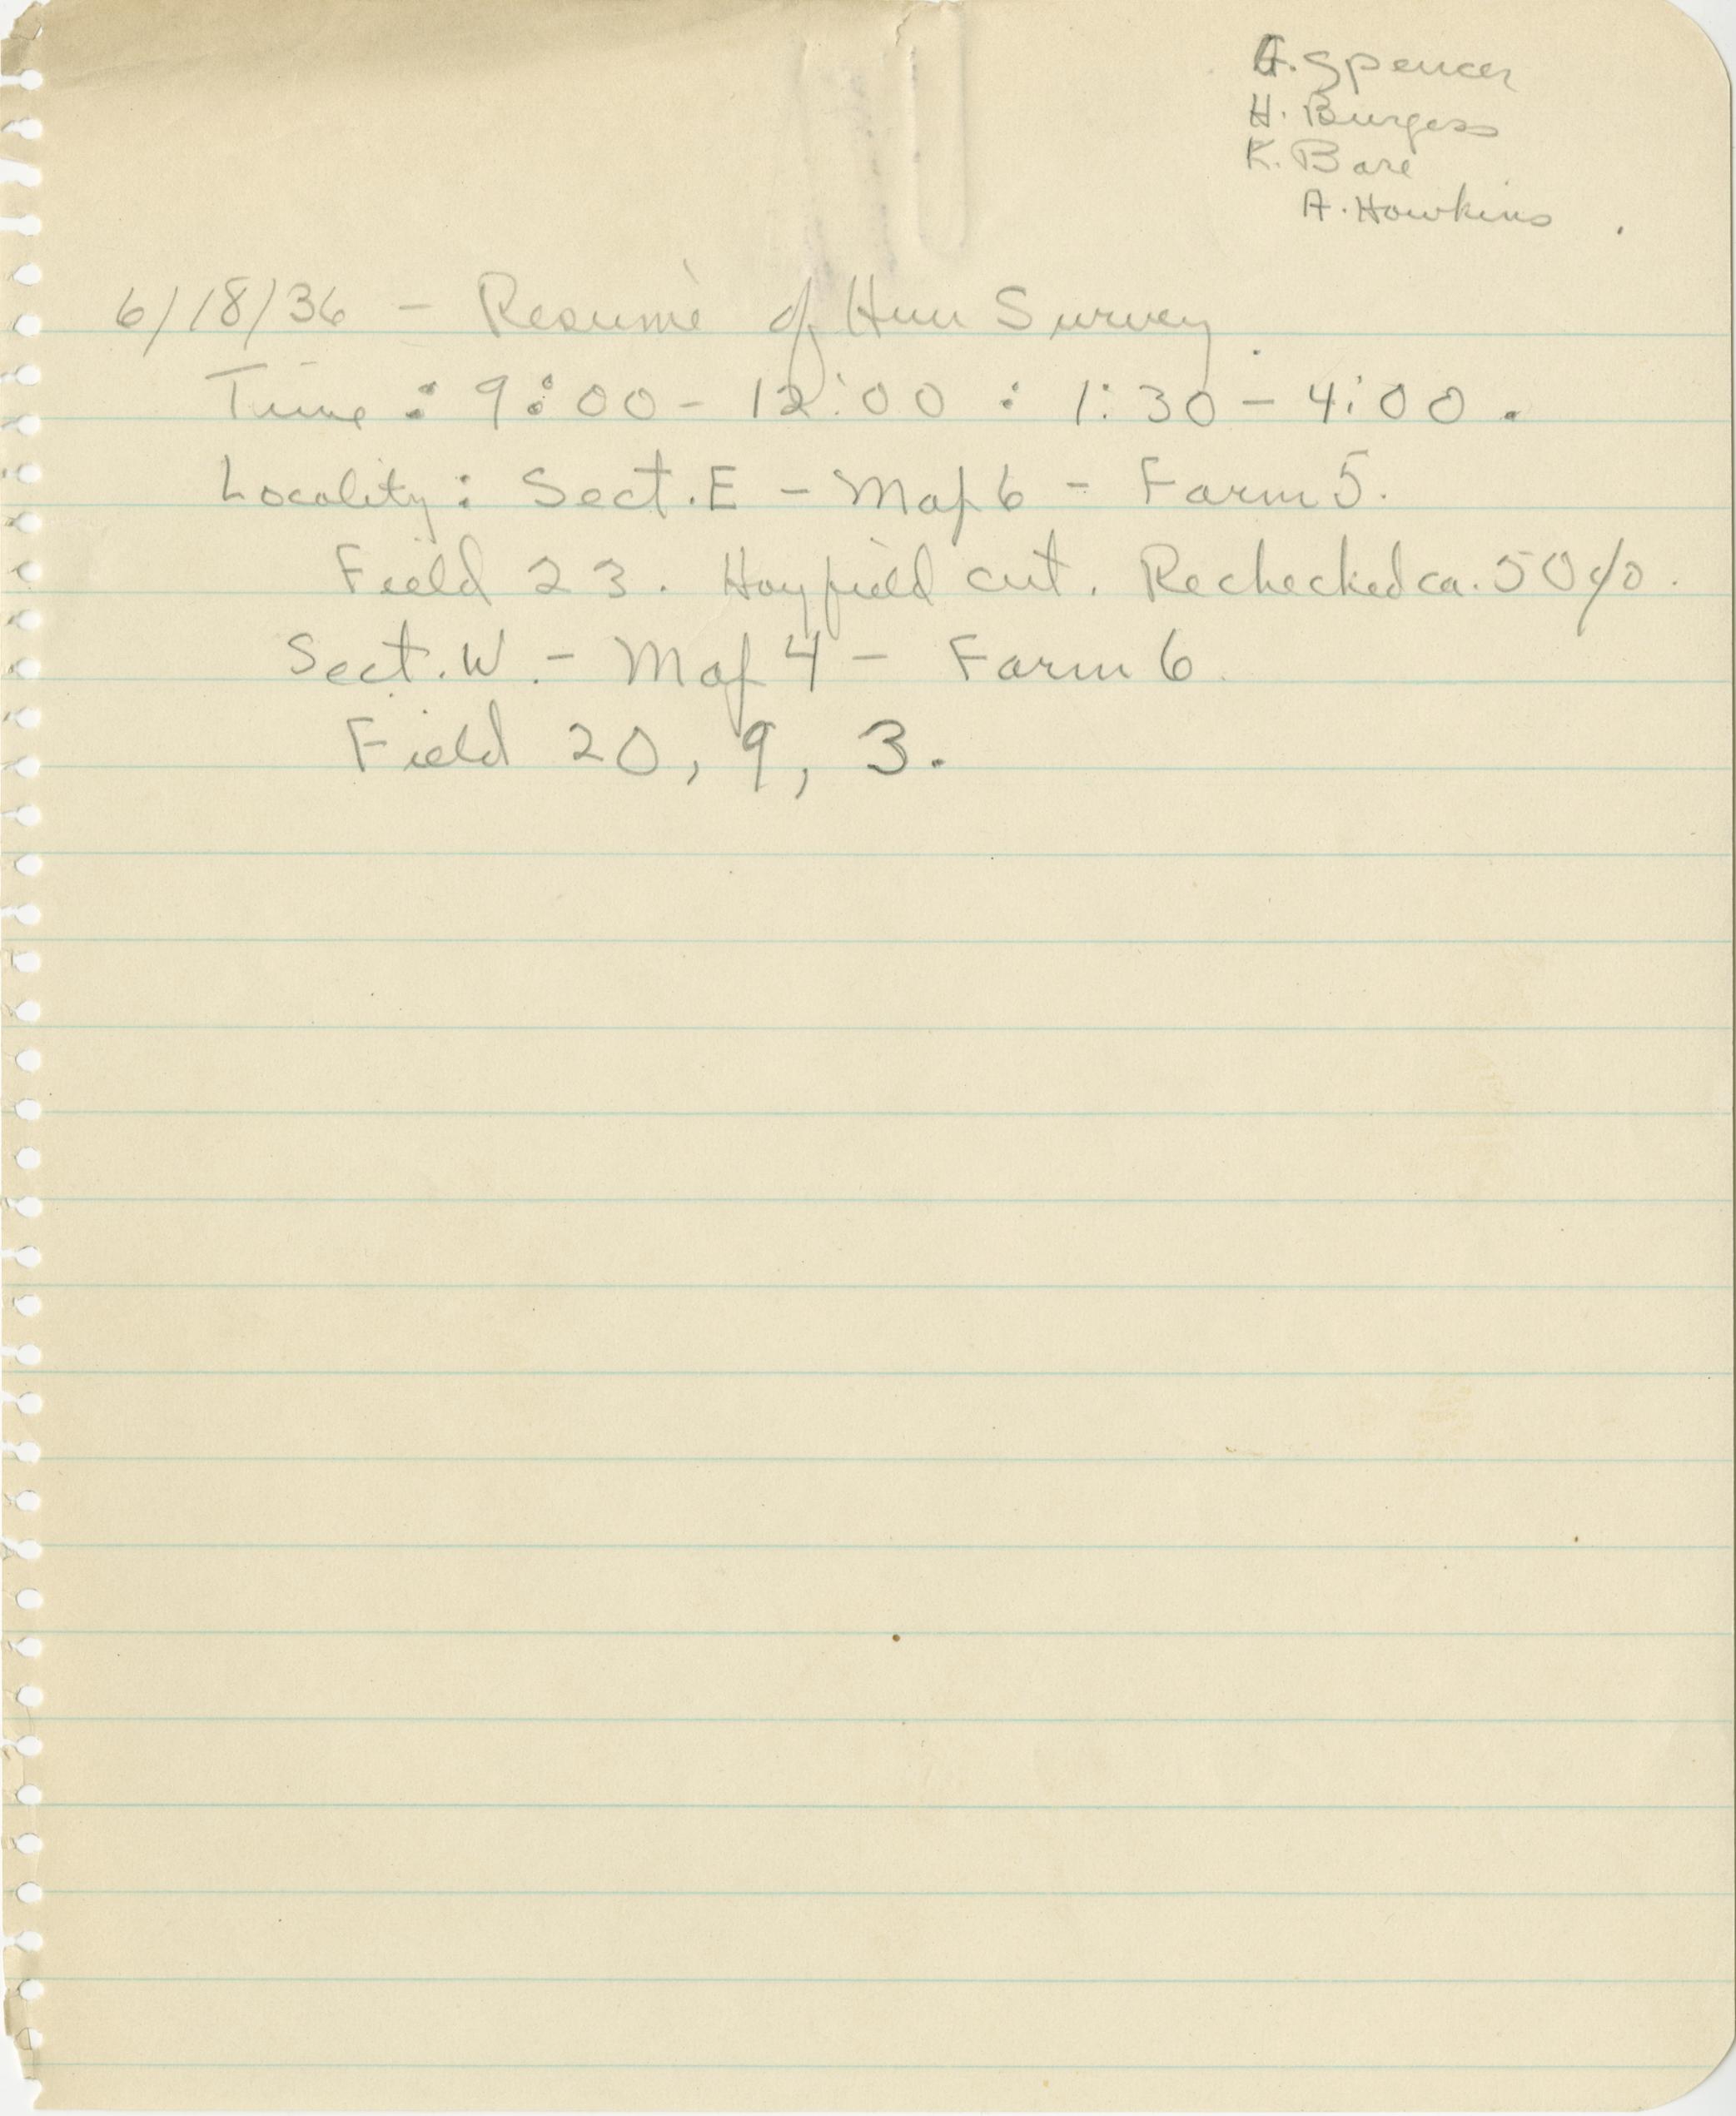 G. Spencer
H. Burgess
K. Bare
A. Hawkins
6/18/36 - Resumé of Hun Survey.
Time : 9:00 - 12:00 : 1:30 - 4:00.
Locality: Sect. E - Map 6 - Farm 5.
Field 23. Hayfield cut. Rechecked ca. 50%.
Sect. W. - Map 4 - Farm 6.
Field 20, 9, 3.